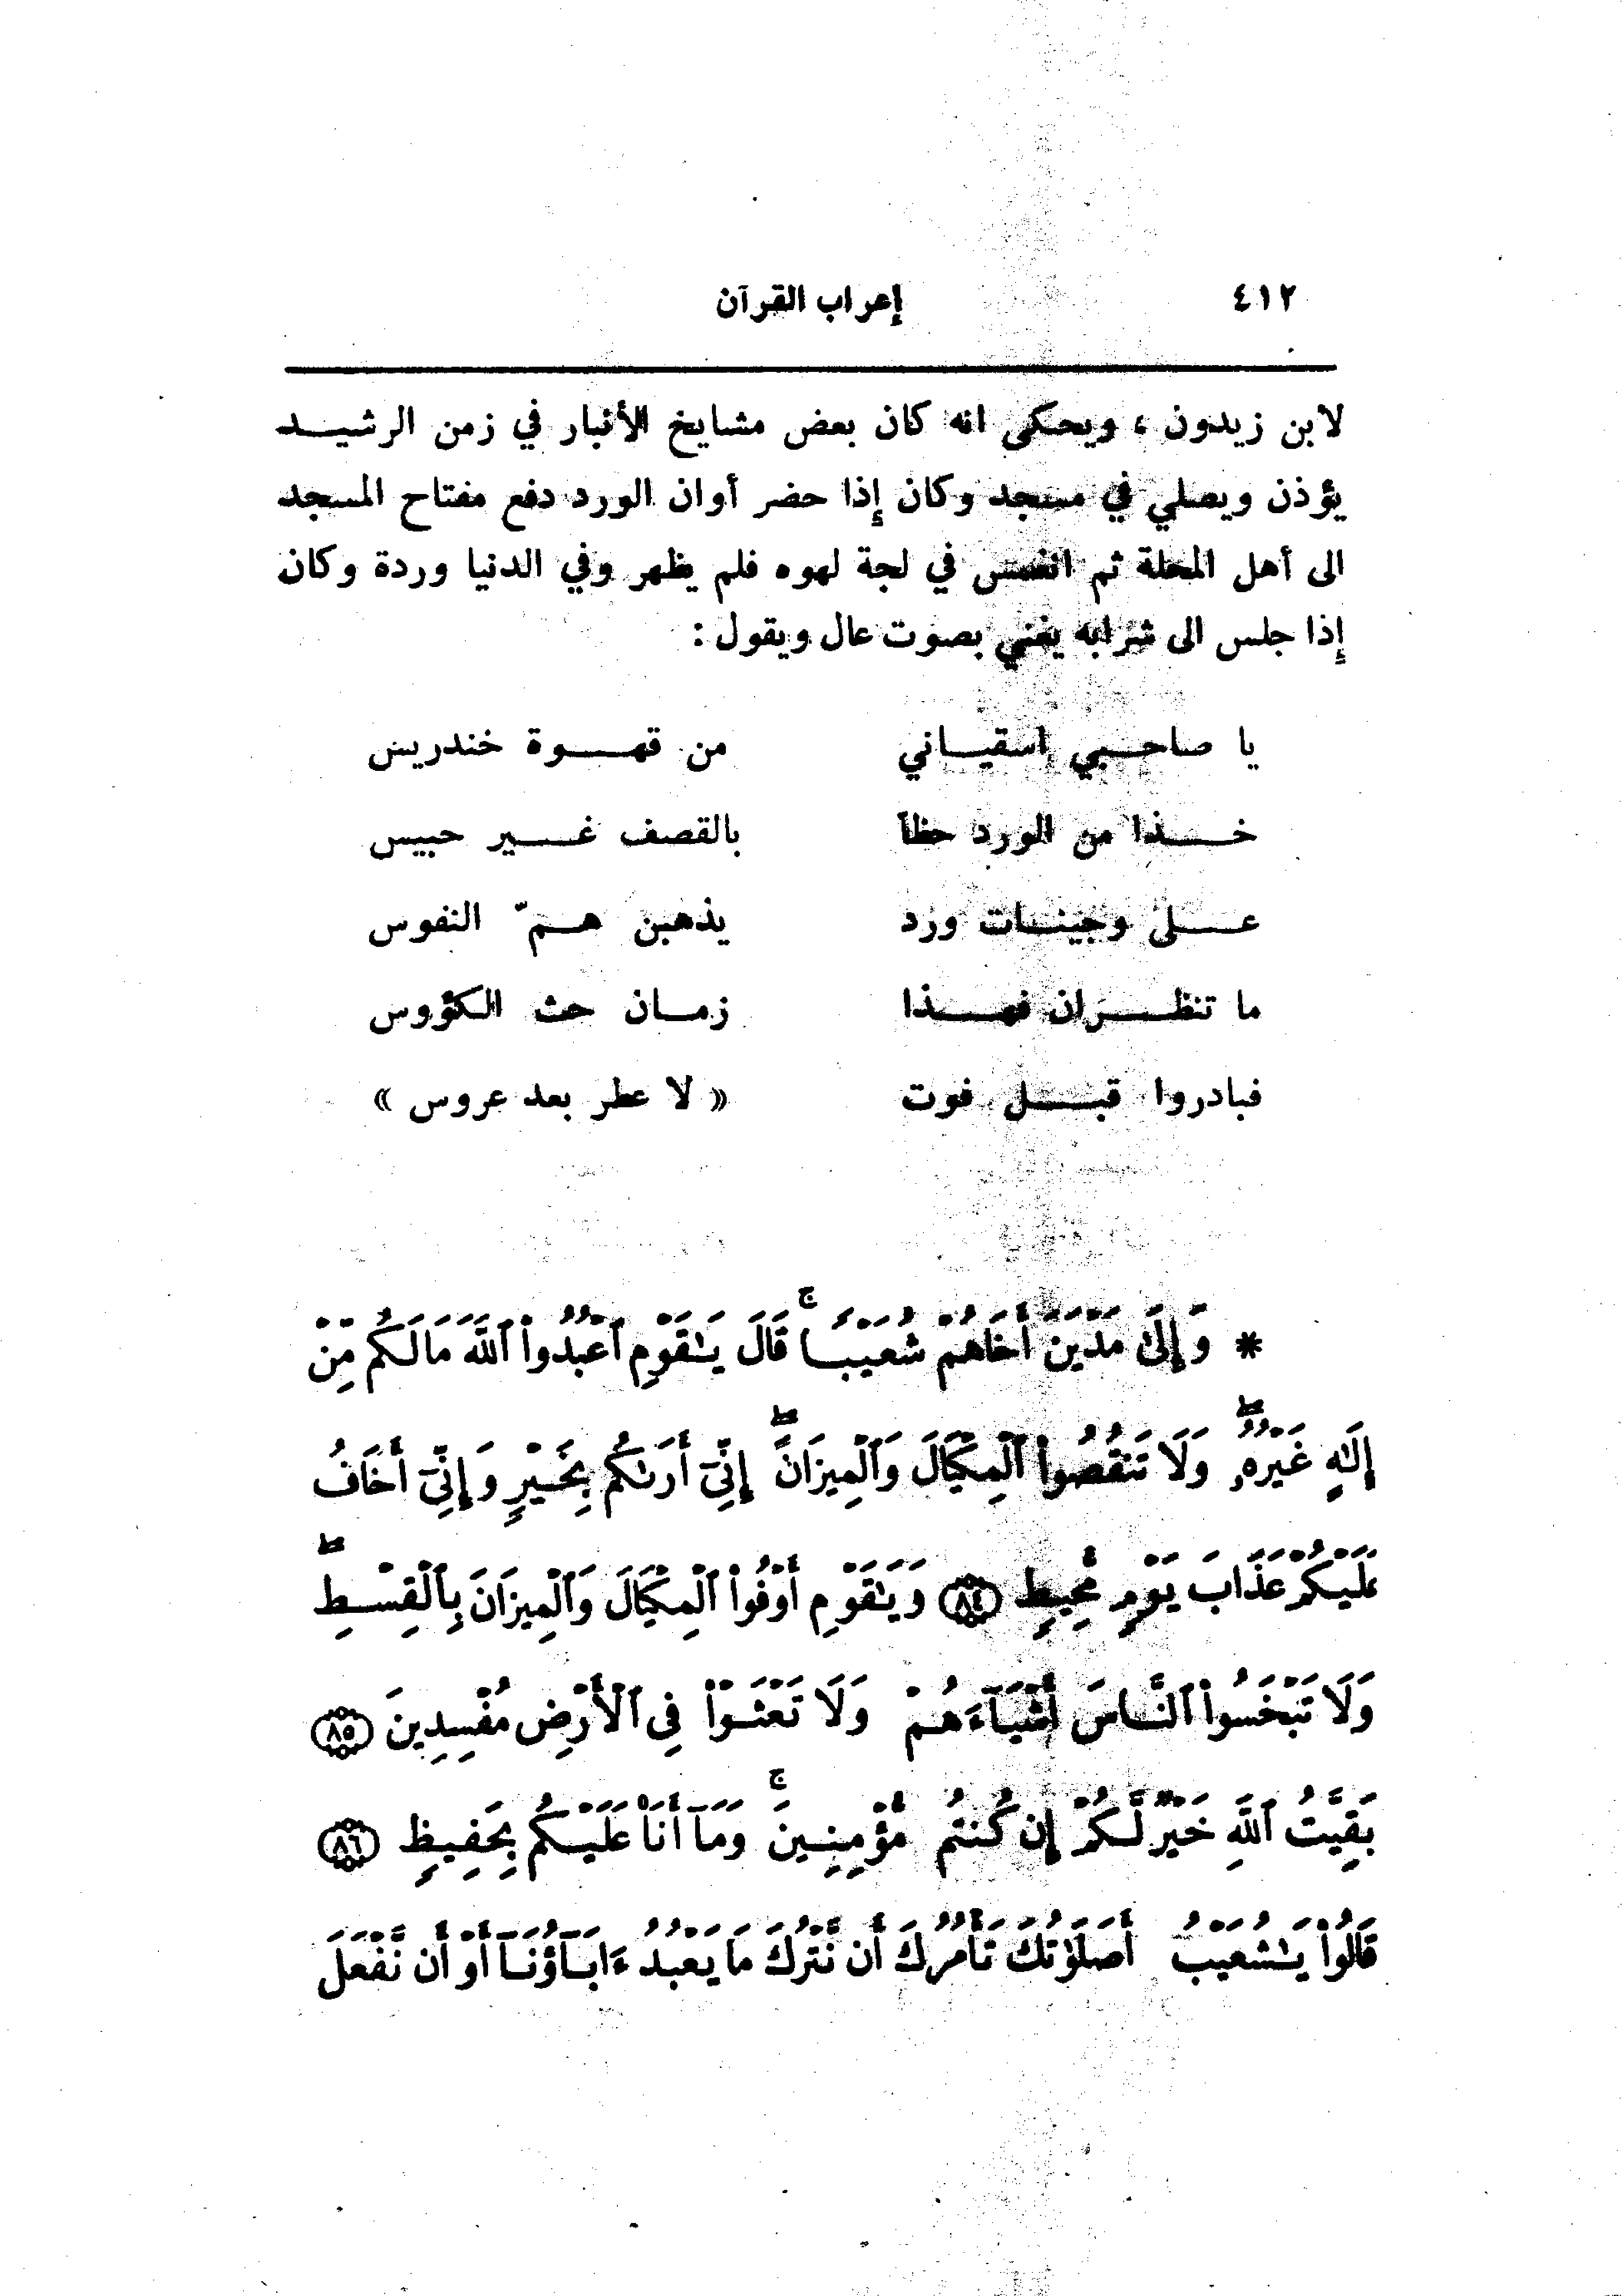 ٤١٢ إعراب القرآن
لابن زيدون ، ويحكى انه كان بعض مشايخ الأنبار في زمن الرشيـــد
يؤذن ويصلي في مسجد وكان إذا حضر أوان الورد دفع مفتاح المسجد
الى أهل المحلة ثم انغمس في لجة لهوه فلم يظهر وفي الدنيا وردة وكان
إذا جلس الى شرابه يغني بصوت عال ويقول :
يا صاحـــبي اسقيـــاني من قهـــــوة خندريس
خـــــذا من الورد حظاً بالقصف غـــــير حبيس
عـــــلى وجينـــات ورد يذهبن هـــمّ النفوس
ما تنظـــــران فهـــــذا زمـــان حث الكؤوس
فبادروا قبـــــل فوت « لا عطر بعد عروس »
* وَإِلَىٰ مَدْيَنَ أَخَاهُمْ شُعَيْبًا ۚ قَالَ يَٰقَوْمِ ٱعْبُدُوا۟ ٱللَّهَ مَا لَكُم مِّنْ
إِلَٰهٍ غَيْرُهُۥ ۖ وَلَا تَنقُصُوا۟ ٱلْمِكْيَالَ وَٱلْمِيزَانَ ۖ إِنِّىٓ أَرَىٰكُم بِخَيْرٍ وَإِنِّىٓ أَخَافُ
عَلَيْكُمْ عَذَابَ يَوْمٍ مُّحِيطٍ ٨٤ وَيَٰقَوْمِ أَوْفُوا۟ ٱلْمِكْيَالَ وَٱلْمِيزَانَ بِٱلْقِسْطِ ۖ
وَلَا تَبْخَسُوا۟ ٱلنَّاسَ أَشْيَآءَهُمْ وَلَا تَعْثَوْا۟ فِى ٱلْأَرْضِ مُفْسِدِينَ ٨٥
بَقِيَّتُ ٱللَّهِ خَيْرٌ لَّكُمْ إِن كُنتُم مُّؤْمِنِينَ ۚ وَمَآ أَنَا۠ عَلَيْكُم بِحَفِيظٍ ٨٦
قَالُوا۟ يَٰشُعَيْبُ أَصَلَوٰتُكَ تَأْمُرُكَ أَن نَّتْرُكَ مَا يَعْبُدُ ءَابَآؤُنَآ أَوْ أَن نَّفْعَلَ